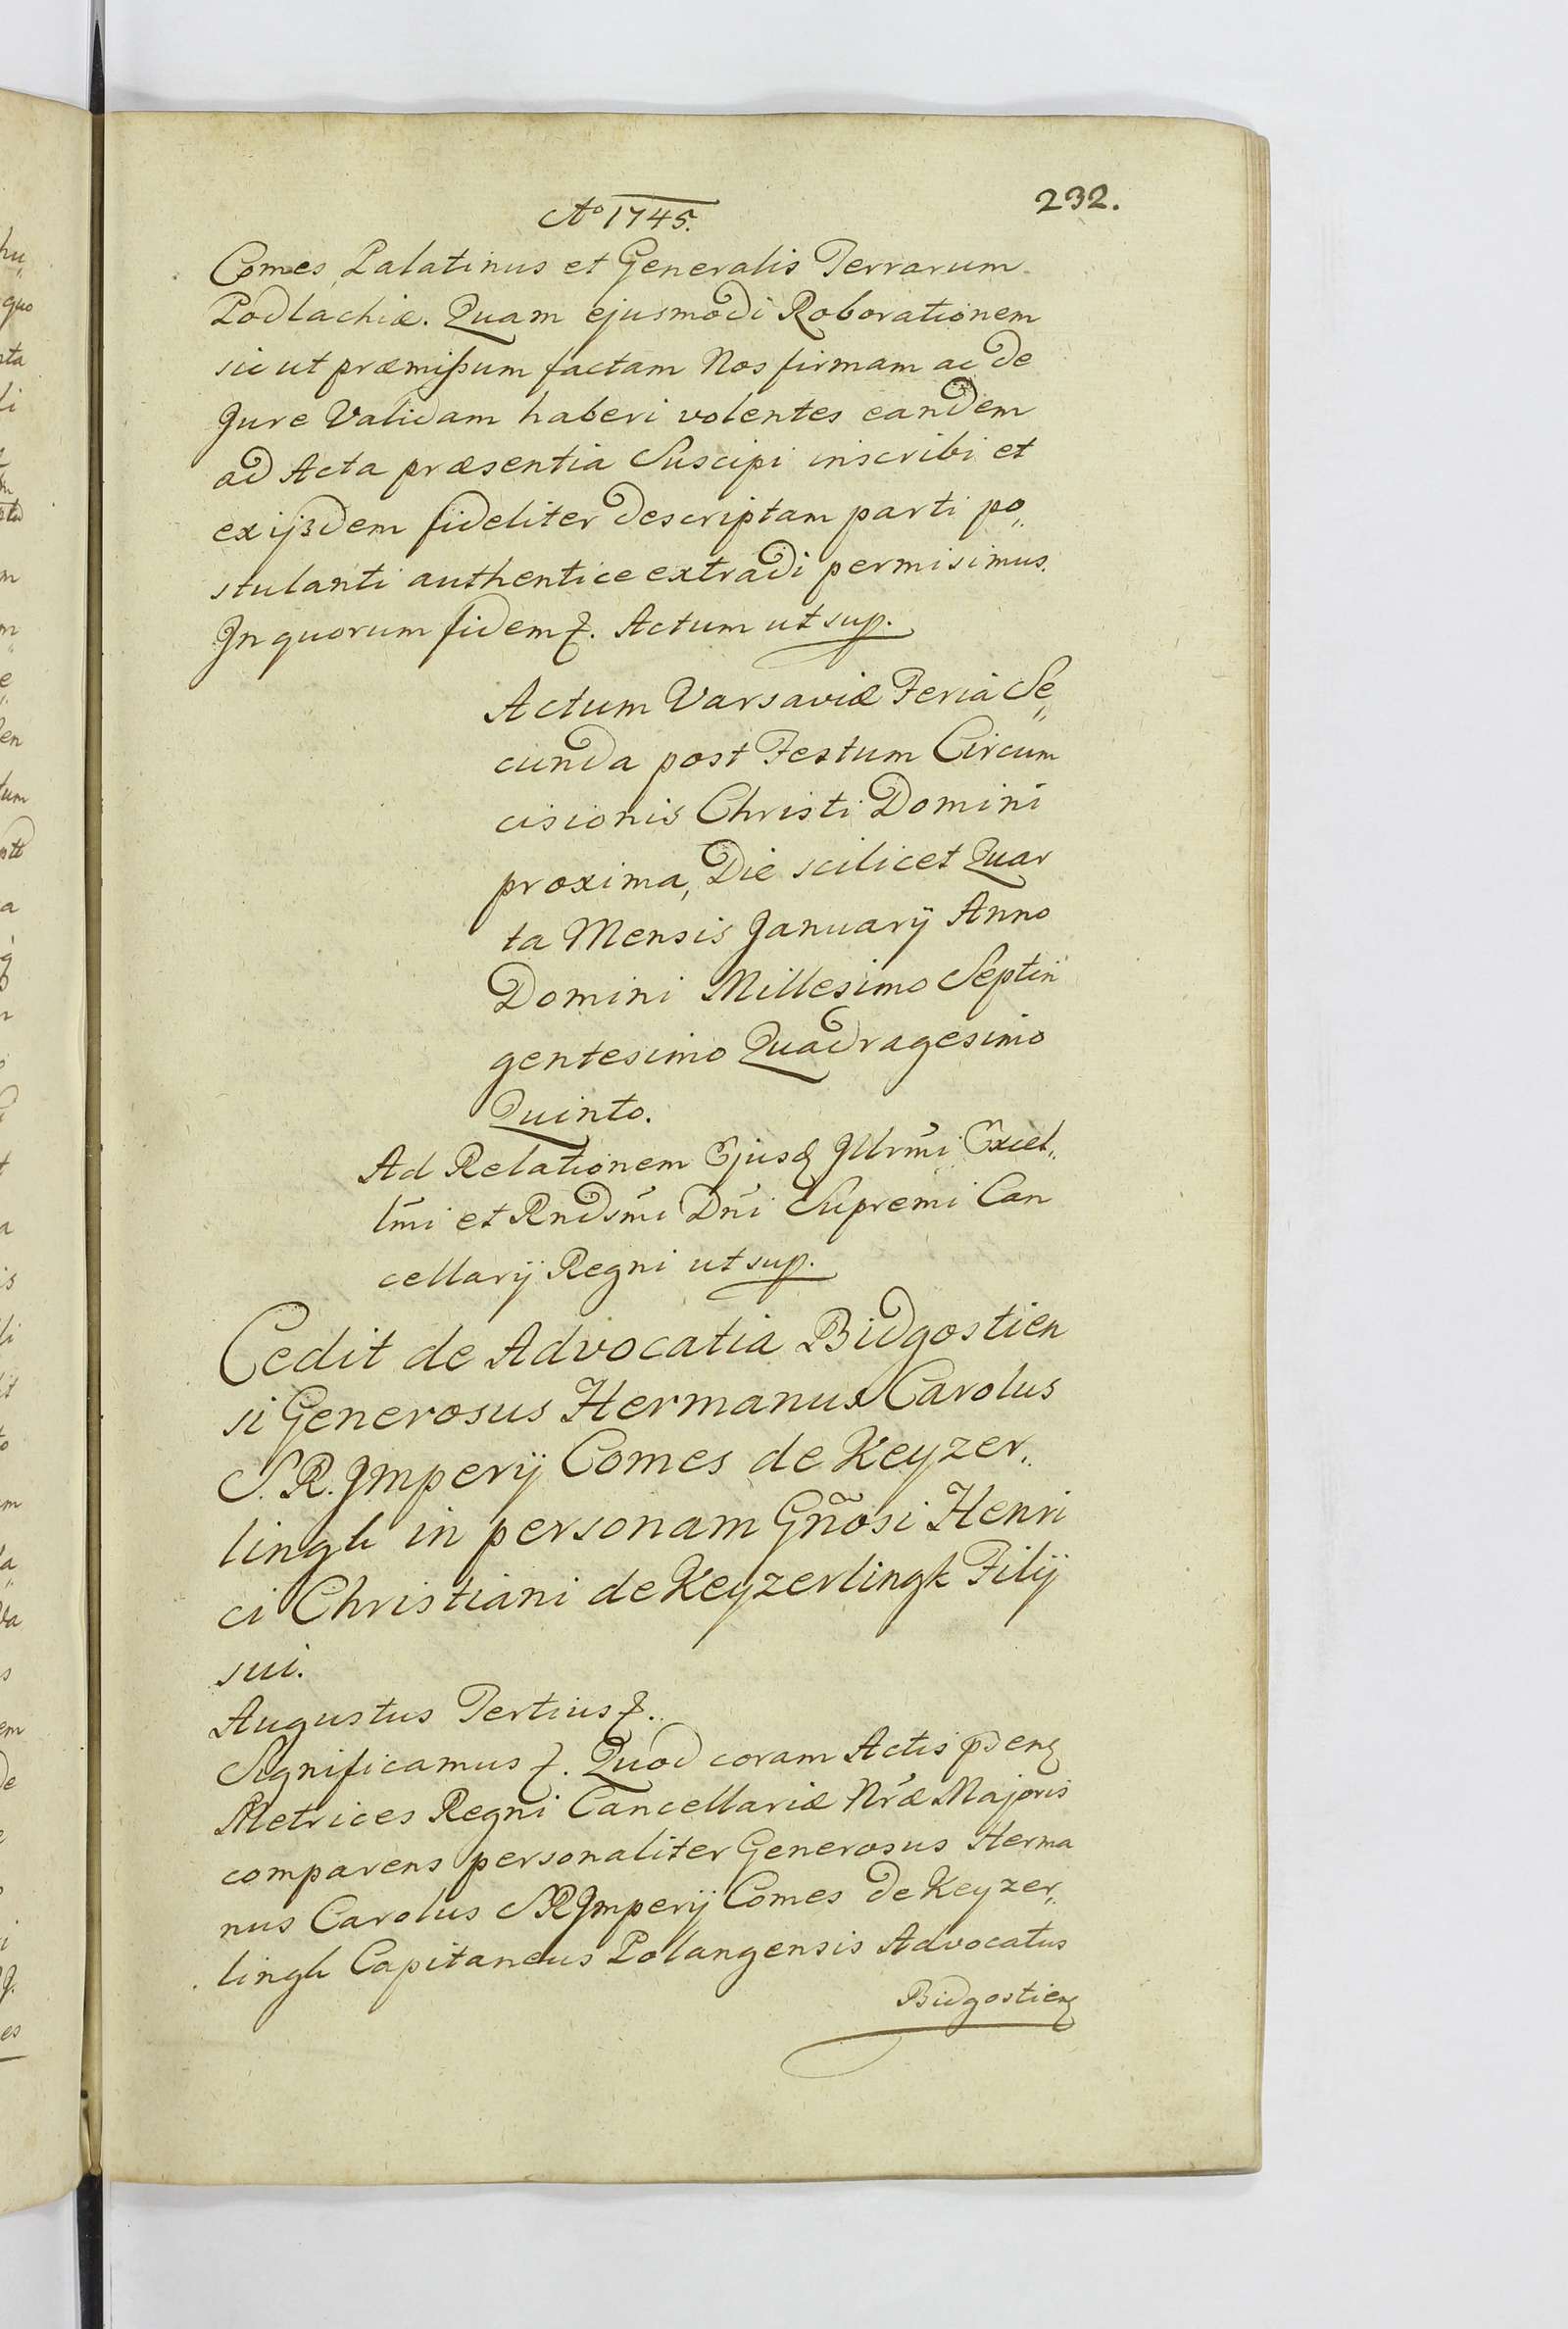 232.
Aº 1745.
Comes Palatinus et Generalis Terrarum
Podlachiæ. Quam ejusmodi Roborationem
sic ut præmißum factam Nos firmam ac de
Jure Validam haberi volentes eandem
ad Acta præsentia Suscipi inscribi et
ex ijsdem fideliter descriptam parti po„
stulanti authentice extradi permisimus.
In quorum fidem &. Actum ut sup.
Actum Varsaviæ Feria Se„
cunda post Festum Circum
cisionis Christi Domini
proxima, Die scilicet Quar
ta Mensis Januarÿ Anno
Domini Millesimo Septin
gentesimo Quadragesimo
Quinto.
Ad Relationem Ejusd Illrm̃i Excel„
lm̃i et Rndsm̃i Dn̄i Supremi Can
cellarÿ Regni ut sup.
Cedit de Advocatia Bidgostien
si Generosus Hermanus Carolus
S. R. Imperÿ Comes de Keyzer„
lingk in personam Gñosi Henri
ci Christiani de Keyzerlingk Filÿ
sui.
Augustus Tertius &.
Significamus &. Quod coram Actis pden
Metrices Regni Cancellariæ Nr̃æ Majoris
comparens personaliter Generosus Herma
nus Carolus SRImperÿ Comes de Keyzer„
lingk Capitaneus Polangensis Advocatus
Bidgostien